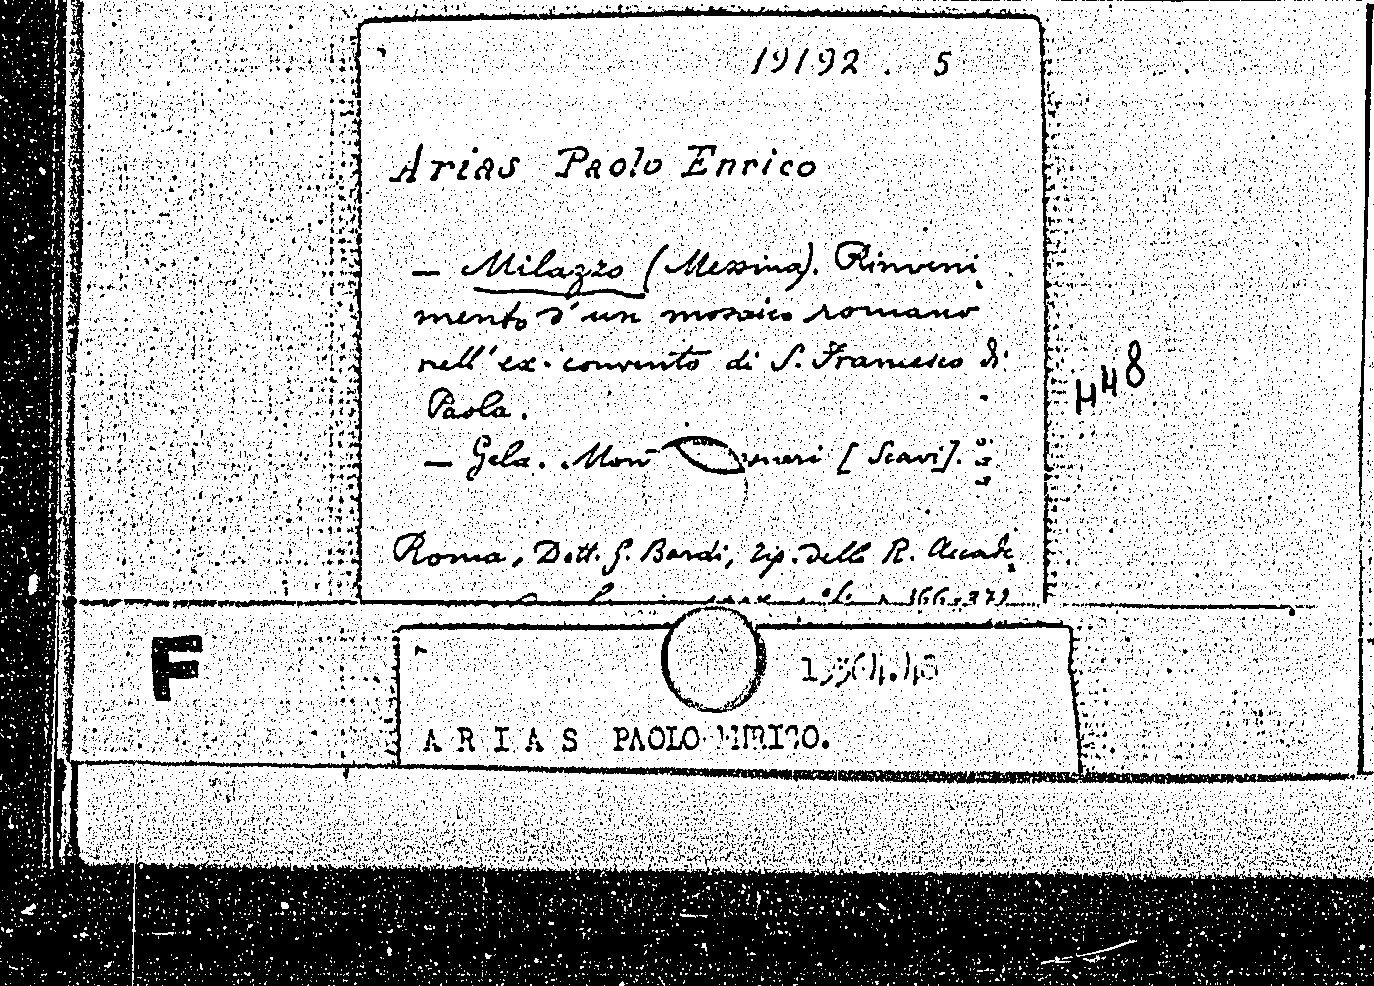 19192 . 5
Arias Paolo Enrico
— Milazzo (Messina). Rinveni
mento d'un mosaico romano
nell'ex-convento di S. Francesco di
Paola.
— Gela. [Scavi].
Roma, Dott. G. Bardi, tip. della R. Accade
166-372
448
F
ARIAS PAOLO